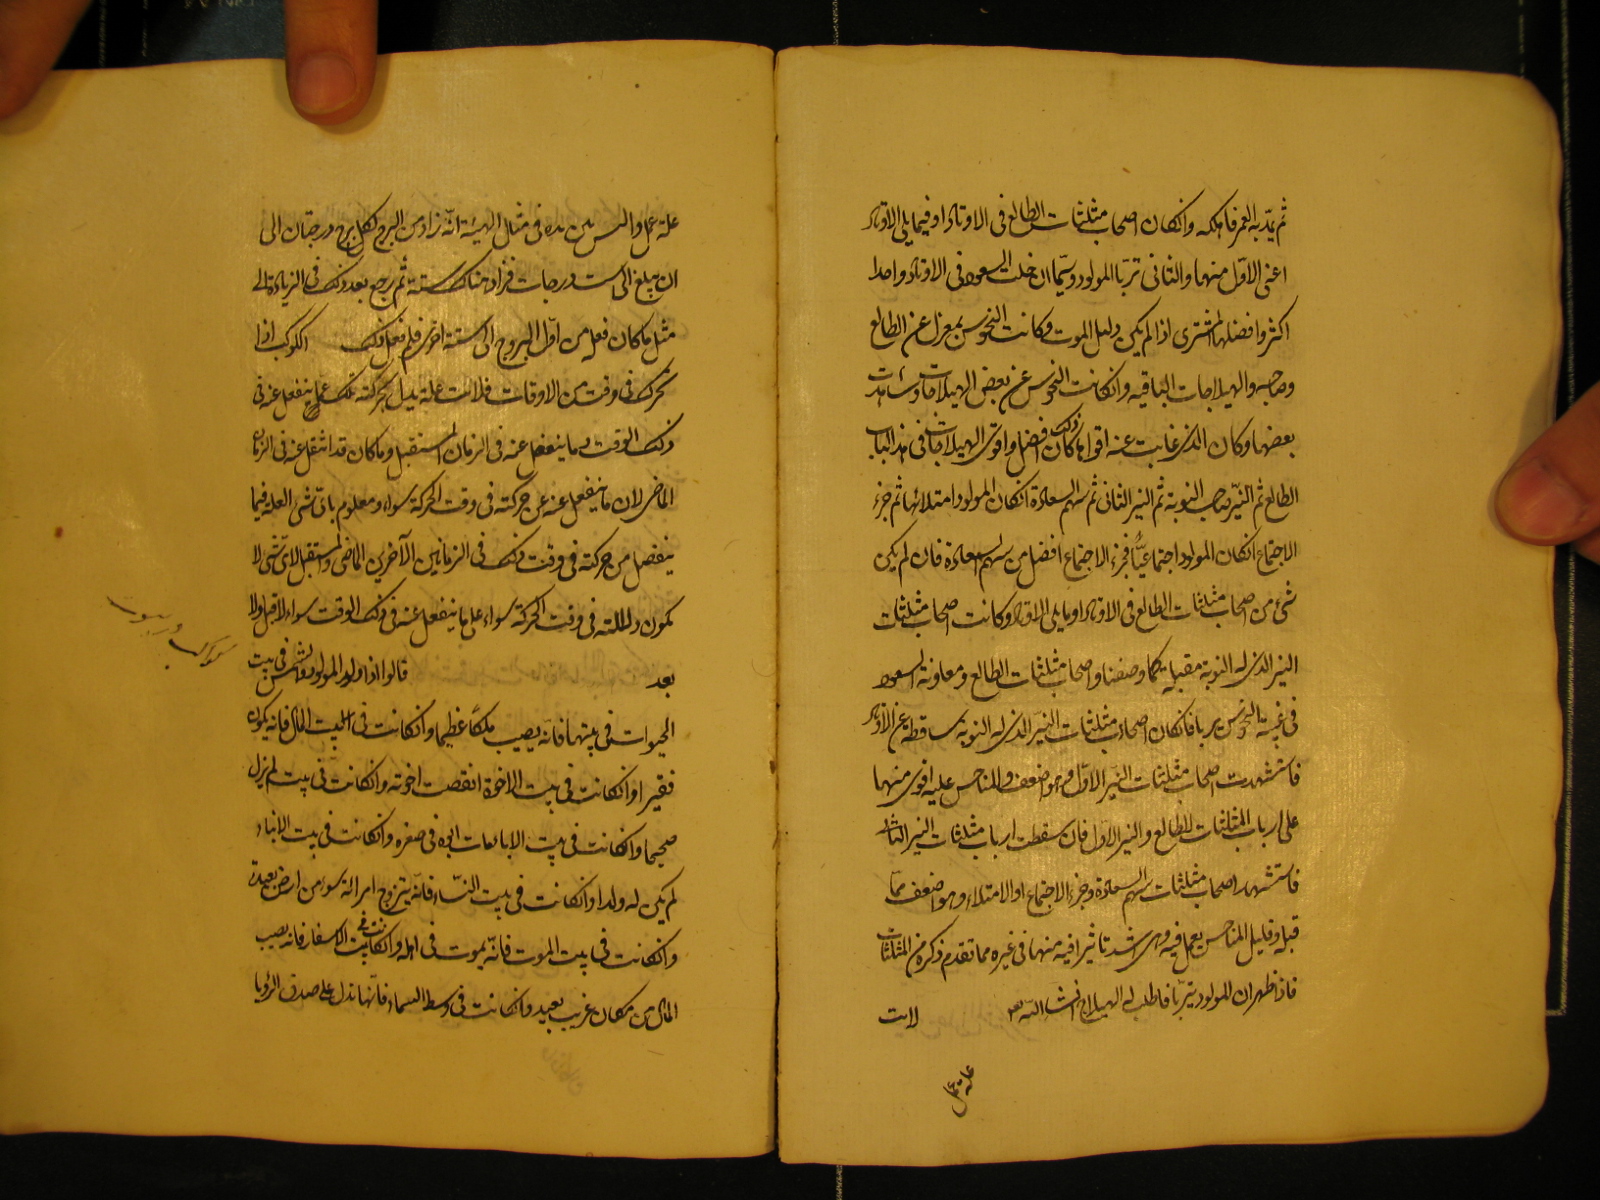 ثم يمدّ به العمر فاهلكه وانكان اصحاب مثلثات الطالع فى الاوتاد او فيما يلى الاوتاد
اعنى الاوّل منهما والثانى تربّا المولود وسيّما ان خلت السعود فى الاوتاد واحدا
اكثر وافضلها المشترى اذا لم يكن دليل الموت وكانت النحوس بمعزل عن الطالع
وصاحبه والهيلاجات الباقيه وانكانت النحوس عن بعض الهيلاجات وشاهدت
بعضها وكان الذى غابت عنه اقواها كان ذلك افضل واقوى الهيلاجات فى هذا الباب
الطالع ثم النيّر صاحب النوبة ثم النير الثانى ثم سهم السعادة انكان المولود امتلائها ثم جزء
الاجتماع انكان المولود اجتماعيّا فجزء الاجتماع افضل من سهم السعادة فان لم يكن
شئ من اصحاب مثلثات الطالع فى الاوتاد او ما يلى الاوتاد وكانت اصحاب مثلثات
النير الذى له النوبة مقبلة كما وصفنا واصحاب مثلثات الطالع ومعاونة السعود
فى غيبة النحوس ربا فانكان اصحاب مثلثات النيّر الذى له النوبة ساقطة عن الاوتاد
فاستشهدت اصحاب مثلثات النيّر الاوّل وهو اضعف والمناحس عليه اقوى منهما
على ارباب المثلثات الطالع والنير الاول فان سقطت ارباب مثلثات النير الثانى
فاستشهد اصحاب مثلثات سهم السعادة وجزء الاجتماع او الامتلاء وهو اضعف ممّا
قبله وقليل المناحس يعمل فيه وهى اشد تاثيرا فيه منهما فى غيره مما تقدم ذكره من المثلثات
فاذا ظهر ان المولود يتربّا فاطلب له الهيلاج انشاء اللّه تع لانت
علة عمل
علة عمل فى مثال الهيئة انّه زاد من البرج لكل برج درجتان الى
ان يبلغ الى ست درجات فزاد هناك ستة ثم رجع بعد ذلك فى الزيادة الى
مثل ما كان فعل من اوّل البروج الى الستة اخرى فلم فعل ذلك الكوكب اذا
تحرك فى وقت من الاوقات فلانت علة يدل بحركته تلك على ما ينفعل عنه فى
ذلك الوقت وما ينفعل عنه فى الزمان المستقبل وما كان قد انفعل عنه فى الزمان
الماضى لان ما ينفعل عنه عن حركته فى وقت الحركة سواء ومعلوم باىّ شئ العلة فيما
ينفصل من حركته فى وقت ذلك فى الزمانين الآخرين الماضى والمستقبل لاىّ شئ لا
يكون دلالته فى وقت الحركة سواء على ما ينفعل عنه فى ذلك الوقت سواء لا قبل ولا
بعد قالوا اذا ولد المولود والشمس فى بيت
الحيوات فى بيتها فانّه يصيب ملكًا عظيما وانكانت فى بيت المال فانه يكون
فقيرا وانكانت فى بيت الاخوة انقصت اخوته وانكانت فى بيت لم يزل
صحيحا وانكانت فى بيت الابا مات ابوه فى صغره وانكانت فى بيت الابناء
لم يكن له ولد او انكانت فى بيت النساء فانّه يتزوج امراة سوء من ارض بعيدة
وانكانت فى بيت الموت فانّه يموت فى اهله وانكانت فى بيت الاسفار فانه يصيب
المال من مكان غريب بعيد وانكانت فى وسط السماء فانّها تدل على صدق الرؤيا